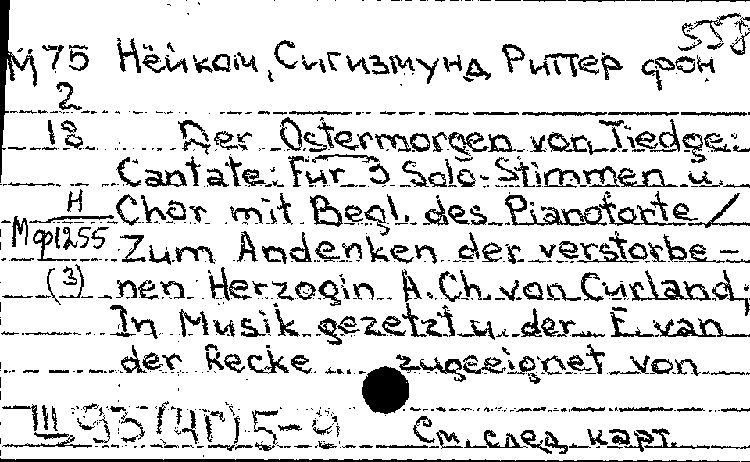 558
М 75 Нейком, Сигизмунд Риттер фон
2
18 Der Ostermorgen von Tiedge:
Cantate: Für 3 Solo-Stimmen u.
Н Chor mit Begl. des Pianoforte /
Мф1255 Zum Andenken der verstorbe-
(3) nen Herzogin A.Ch. von Curland;
In Musik gezetzt u. der E. van
der Recke ... zugeeignet von
III 93(4Г)5-9 См. след. карт.